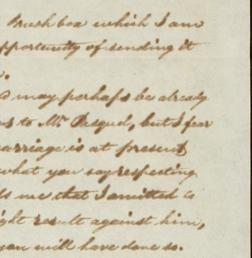 Brush box which I am
opportunity of sending it
.
d may perhaps be already
us to Mr. Bequed, but I fear
carriage is at present
what you say respecting
ls me that I omitted to
ght result against him,
you will have done so.